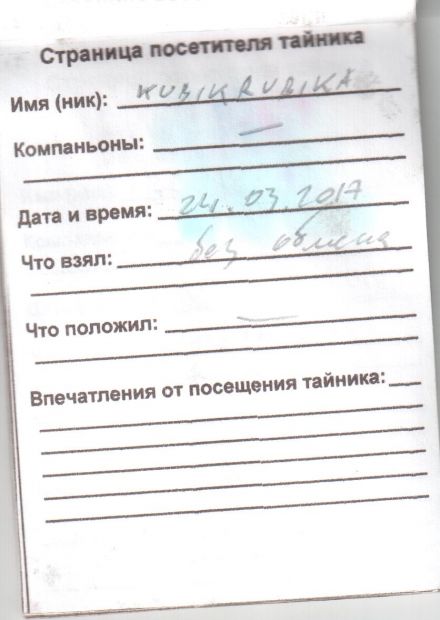 Страница посетителя тайника
Имя (ник): KUBIKRUBIKA
Компаньоны: —
Дата и время: 24.03.2017
Что взял: без обмена
Что положил: —
Впечатления от посещения тайника: